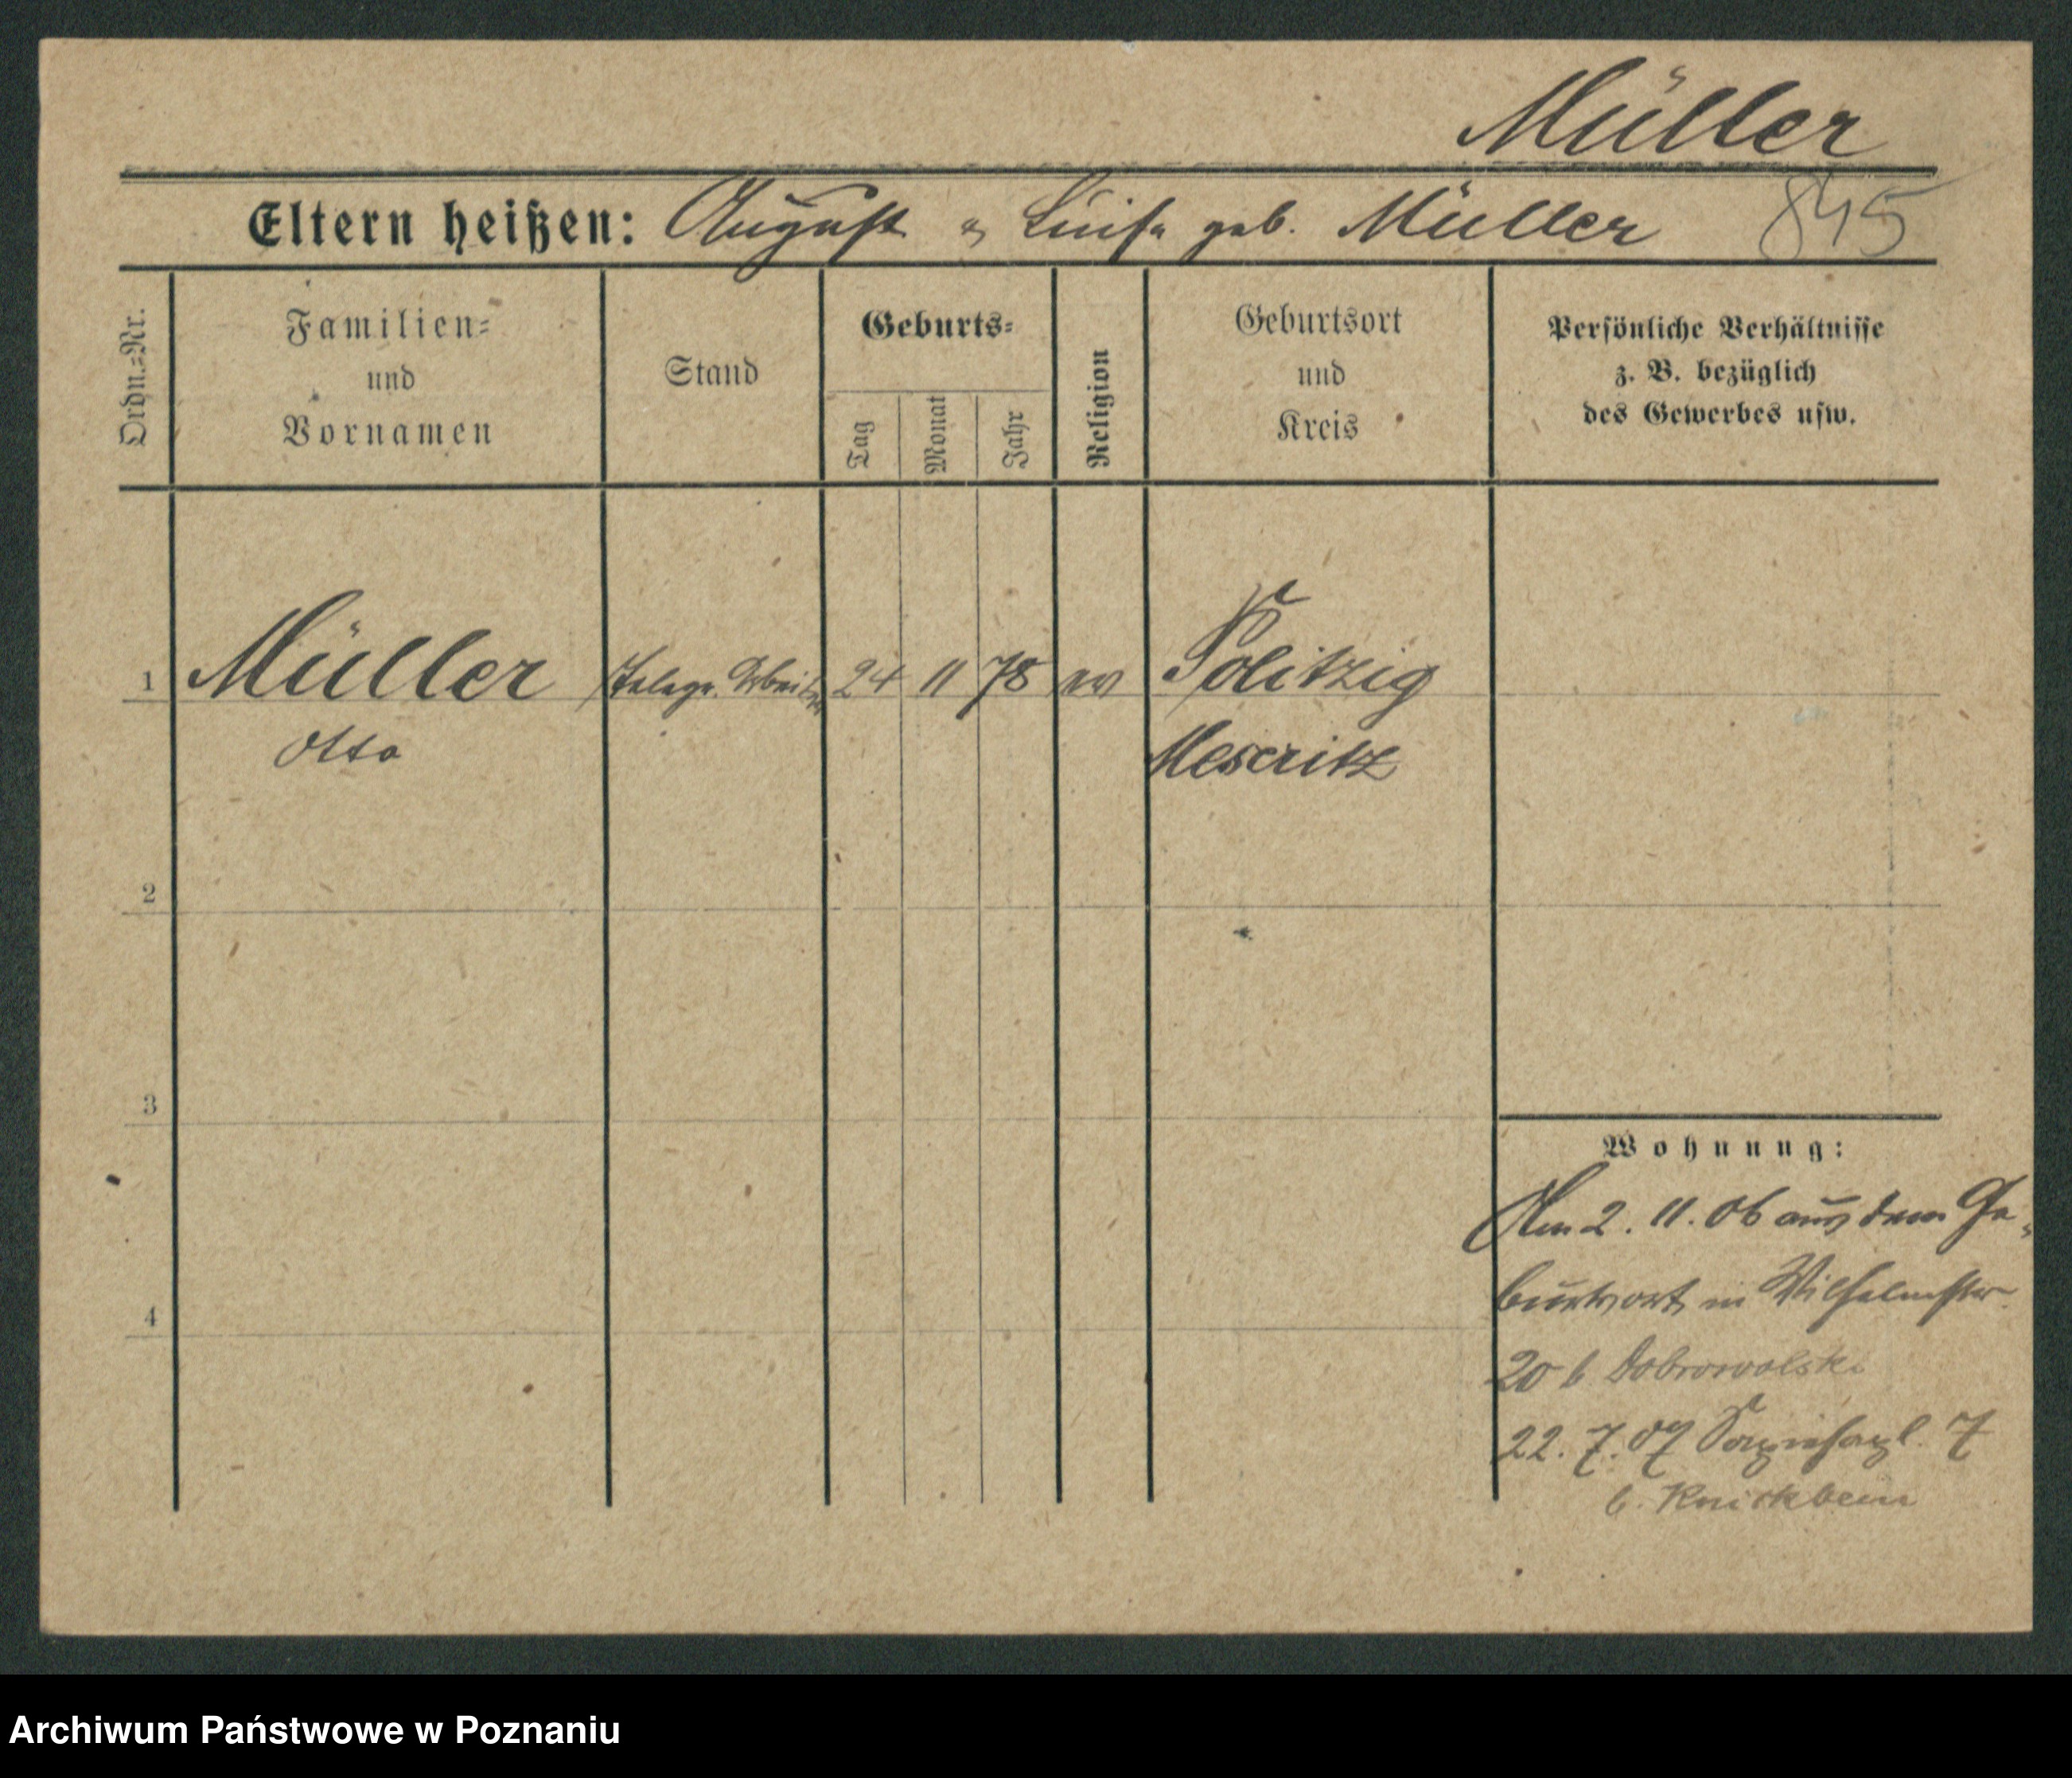 Müller
Eltern heißen: August u Luise geb. Müller 845
Ordn.=Nr.
Familien=
und
Vornamen
Stand
Geburts=
Tag
Monat
Jahr
Religion
Geburtsort
und
Kreis
Persönliche Verhältnisse
z. B. bezüglich
des Gewerbes usw.
1 Müller Telegr. Arbeiter 24 11 78 ev Politzig
Otto Meseritz
2
3
4
Wohnung:
Am 2. 11. 06 aus dem Ge-
burtsort in Wilhelmstr.
20 b Dobrowolski
22. 7. 07 7
b. Knickbein
Archiwum Państwowe w Poznaniu